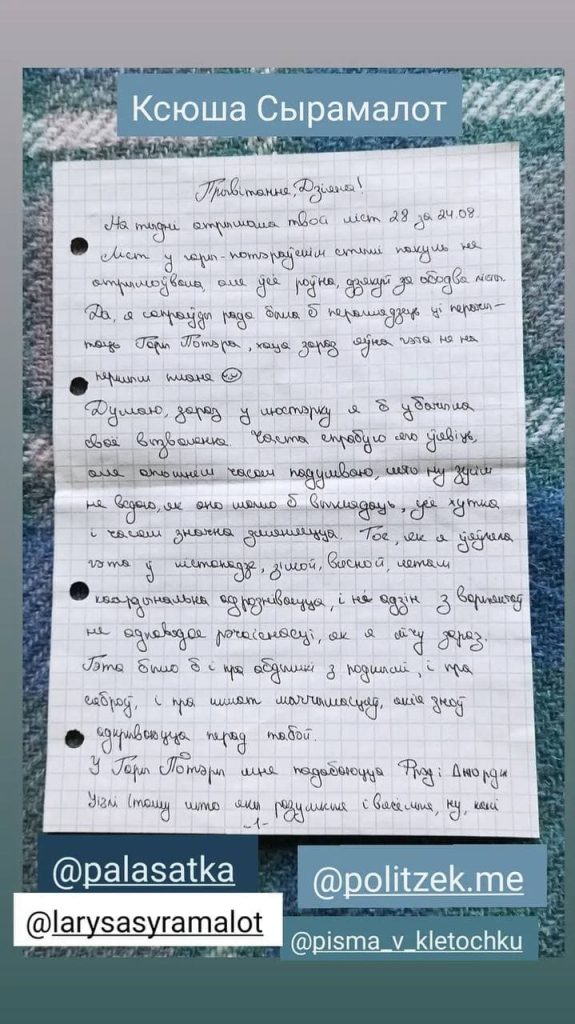 Ксюша Сырамалот
Прывітанне, Дзіяна!
На тыдні атрымала твой ліст 28 за 24.08.
Ліст у гары-потэраўскім стылі пакуль не
атрымоўвала, але ўсё роўна, дзякуй за абодва лісты.
Да, я сапраўды рада была б перагледзець ці перачы-
таць Гары Потэра, хаця зараз яўна гэта не на
першым плане
Думаю, зараз у люстэрку я б убачыла
сваё вызваленне. Часта спрабую яго ўявіць,
але апошнім часам падумваю, што ну зусім
не ведаю, як яно магло б выглядаць, усё хутка
і часам значна змяняецца. Тое, як я ўяўляла
гэта ў лістападзе, зімой, вясной, летам
кардынальна адрозніваецца, і не адзін з варыянтаў
не адпавядае рэчаіснасці, як я лічу зараз.
Гэта было б і пра абдымкі з роднымі, і пра
сяброў, і пра шмат магчымасцяў, якія зноў
адкрываюцца перад табой.
У Гары Потэры мне падабаюцца Фрэд і Джордж
Уізлі (таму што яны разумныя і вясёлыя, ну, калі
-1-
@palasatka
@politzek.me
@larysasyramalot
@pisma_v_kletochku